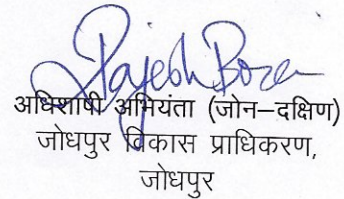 Rajesh Bora
अधिशाषी अभियंता (जोन–दक्षिण)
जोधपुर विकास प्राधिकरण,
जोधपुर